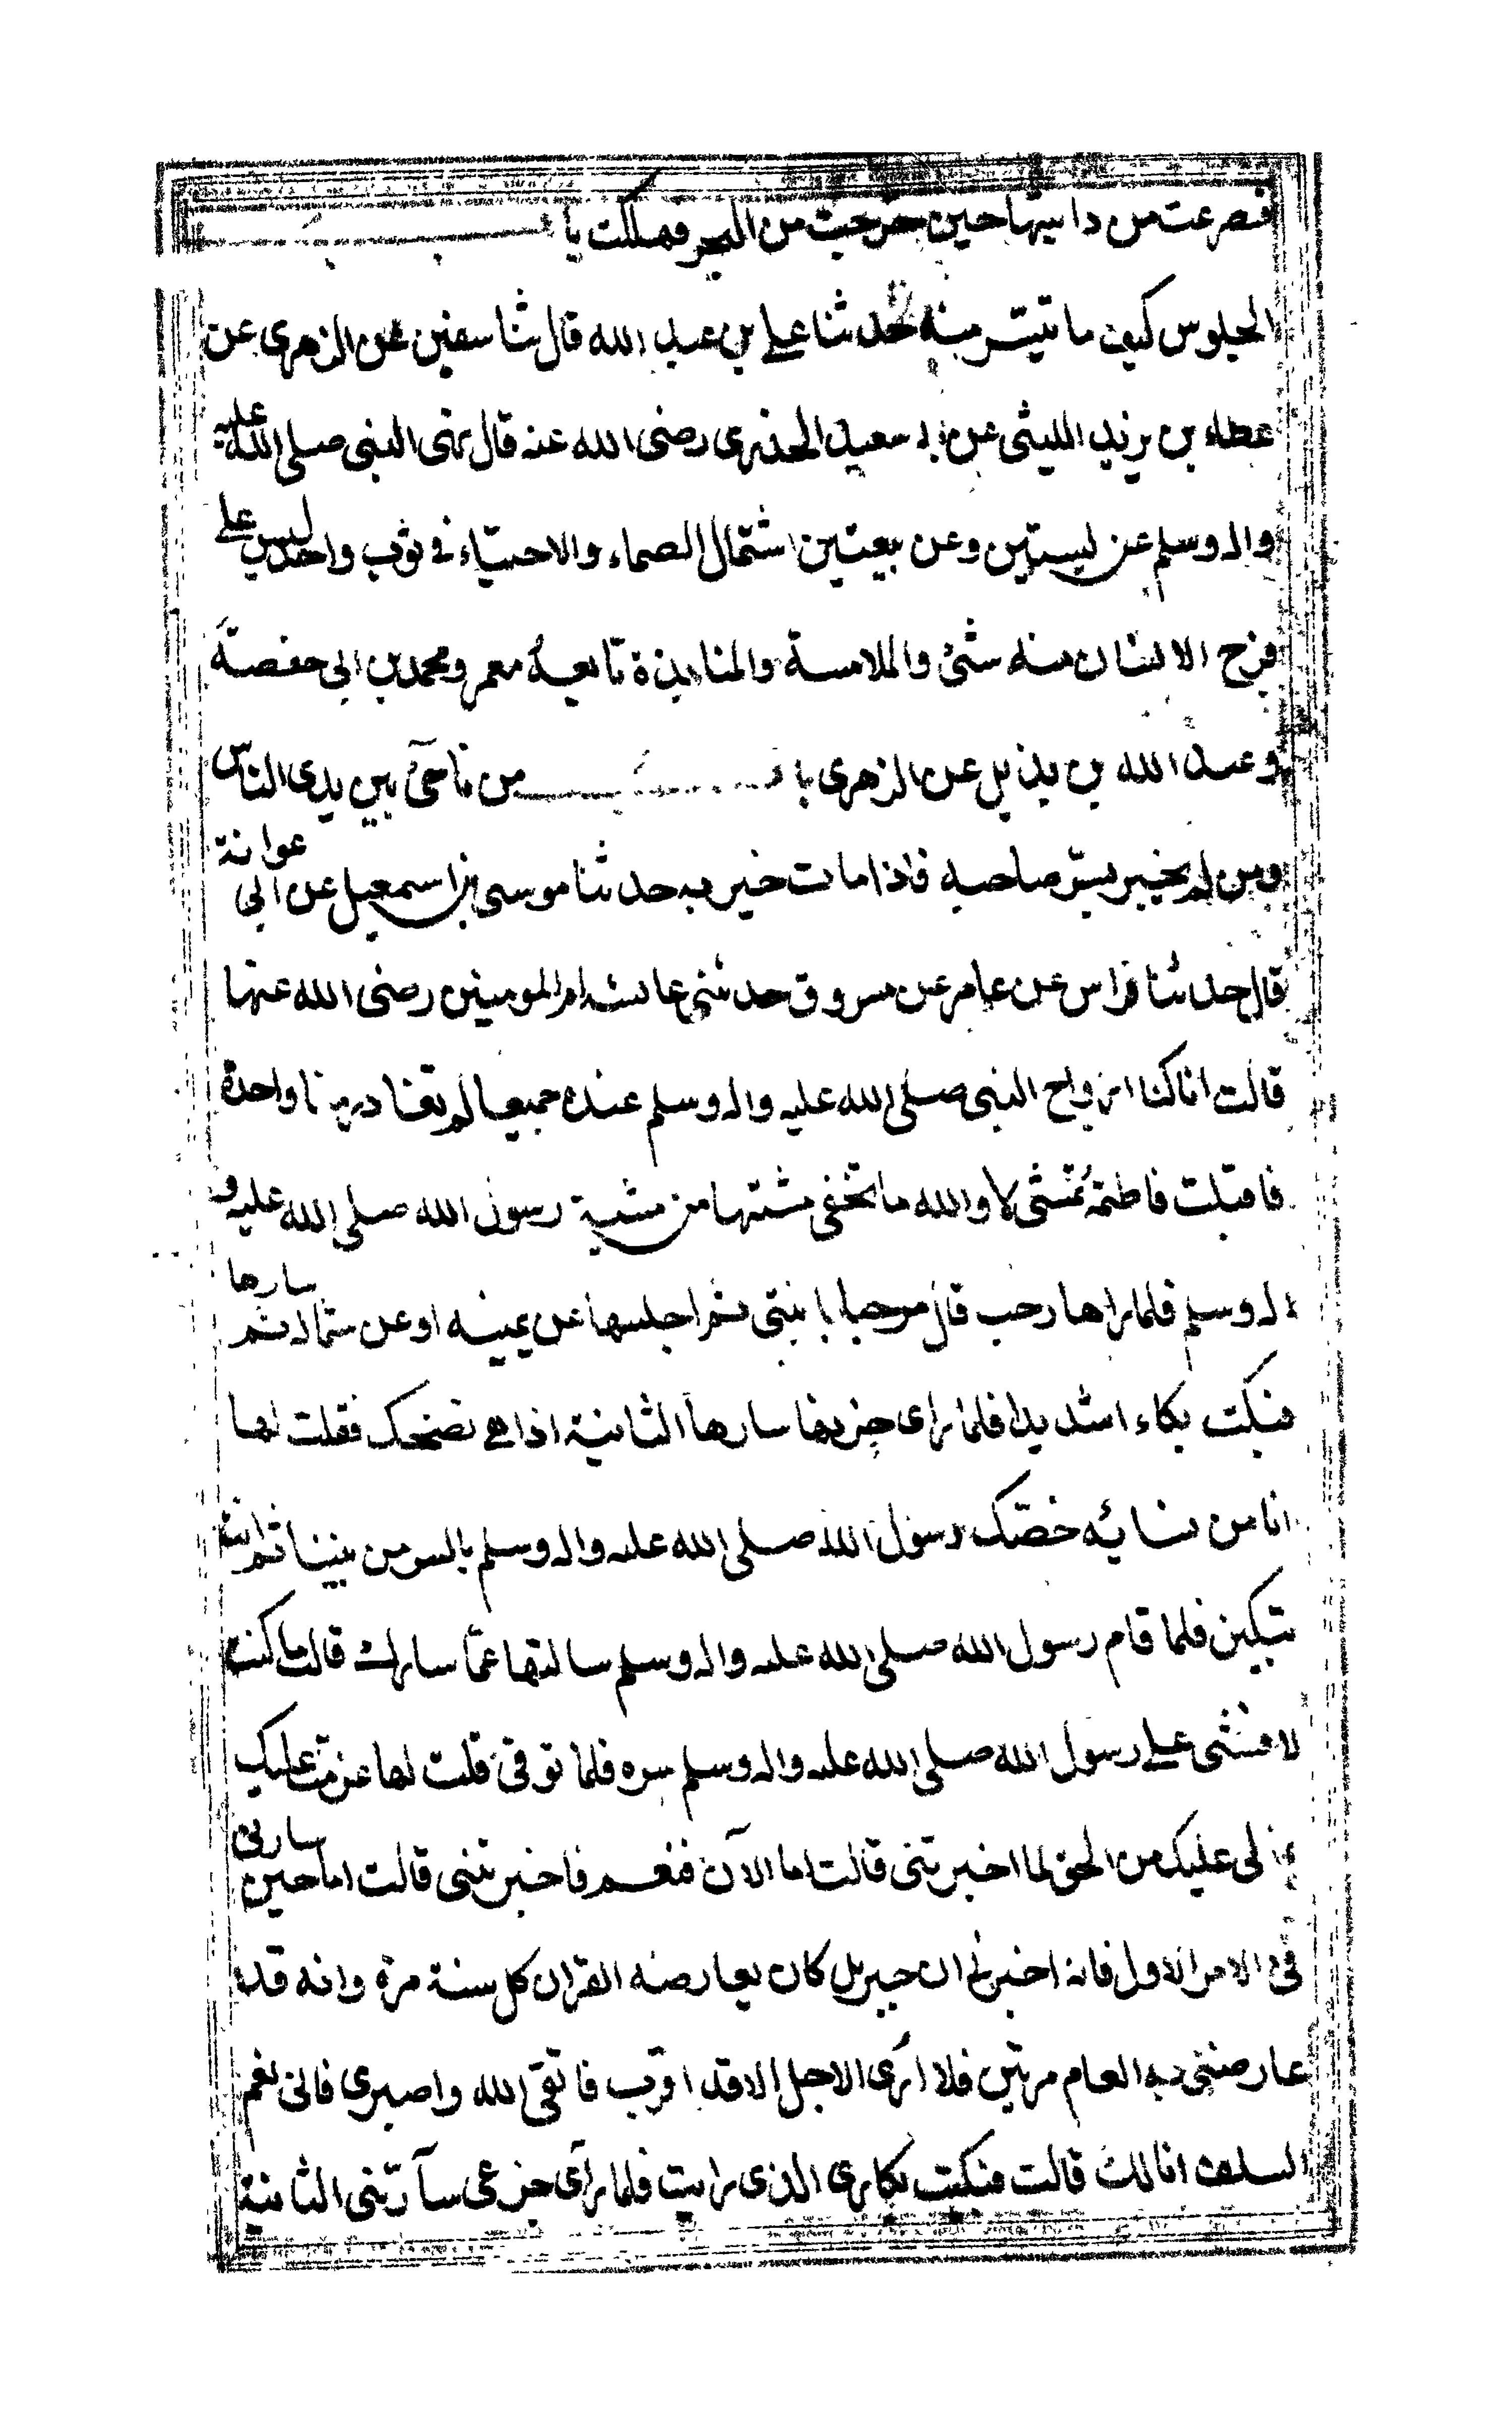 فصرعت من دابتها حين خرجت من البحر فهلكت باب
الجلوس كيف ما تيسر منه حدثنا علي بن عبد الله قال ثنا سفين عن الزهرى عن
عطاء بن يزيد الليثى عن ابى سعيد الخدرى رضى الله عنه قال نهى النبى صلى الله عليه
واله وسلم عن لبستين وعن بيعتين اشتمال الصماء والاحتباء فى ثوب واحد ليس على
فرج الانسان منه شئ والملامسة والمنابذة تابعه معمر ومحمد بن ابى حفصة
وعبد الله بن بديل عن الزهرى باب من ناجى بين يدى الناس
ومن لم يخبر بسر صاحبه فاذا مات خبر به حدثنا موسى بن اسمعيل عن ابى عوانة
قال حدثنا فراس عن عامر عن مسروق حدثنى عائشه ام المومنين رضى الله عنها
قالت انا كنا ازواج النبى صلى الله عليه واله وسلم عنده جميعا لم تغادر منا واحدة
فاقبلت فاطمة تمشى لا والله ما تخفى مشتها من مشية رسول الله صلى الله عليه و
اله وسلم فلما راها رحب قال مرحبا بابنتى ثم اجلسها عن يمينه او عن شماله ثم سارها
فبكت بكاء اشديدا فلما راى حزنها سارها الثانية اذا هى تضحك فقلت لها
انا من نسائه خصّك رسول الله صلى الله عليه واله وسلم بالسر من بيننا ثم انت
تبكين فلما قام رسول الله صلى الله عليه واله وسلم سالتها عمّا سارك قالت ما كنت
لافشى على رسول الله صلى الله عليه واله وسلم سره فلما توفى قلت لها عزمت عليك
بما لى عليك من الحق لما اخبرتنى قالت اما الآن فنعم فاخبرتنى قالت اما حين سارنى
فى الامر الاول فانه اخبرنى ان جبريل كان يعارضه القران كل سنة مرة وانه قد
عارضنى به العام مرتين فلا ارى الاجل الا قد اقترب فاتقى الله واصبرى فانى نعم
السلف انا لك قالت فبكيت بكاى الذى رايت فلما راى جزعى سآرّنى الثانية